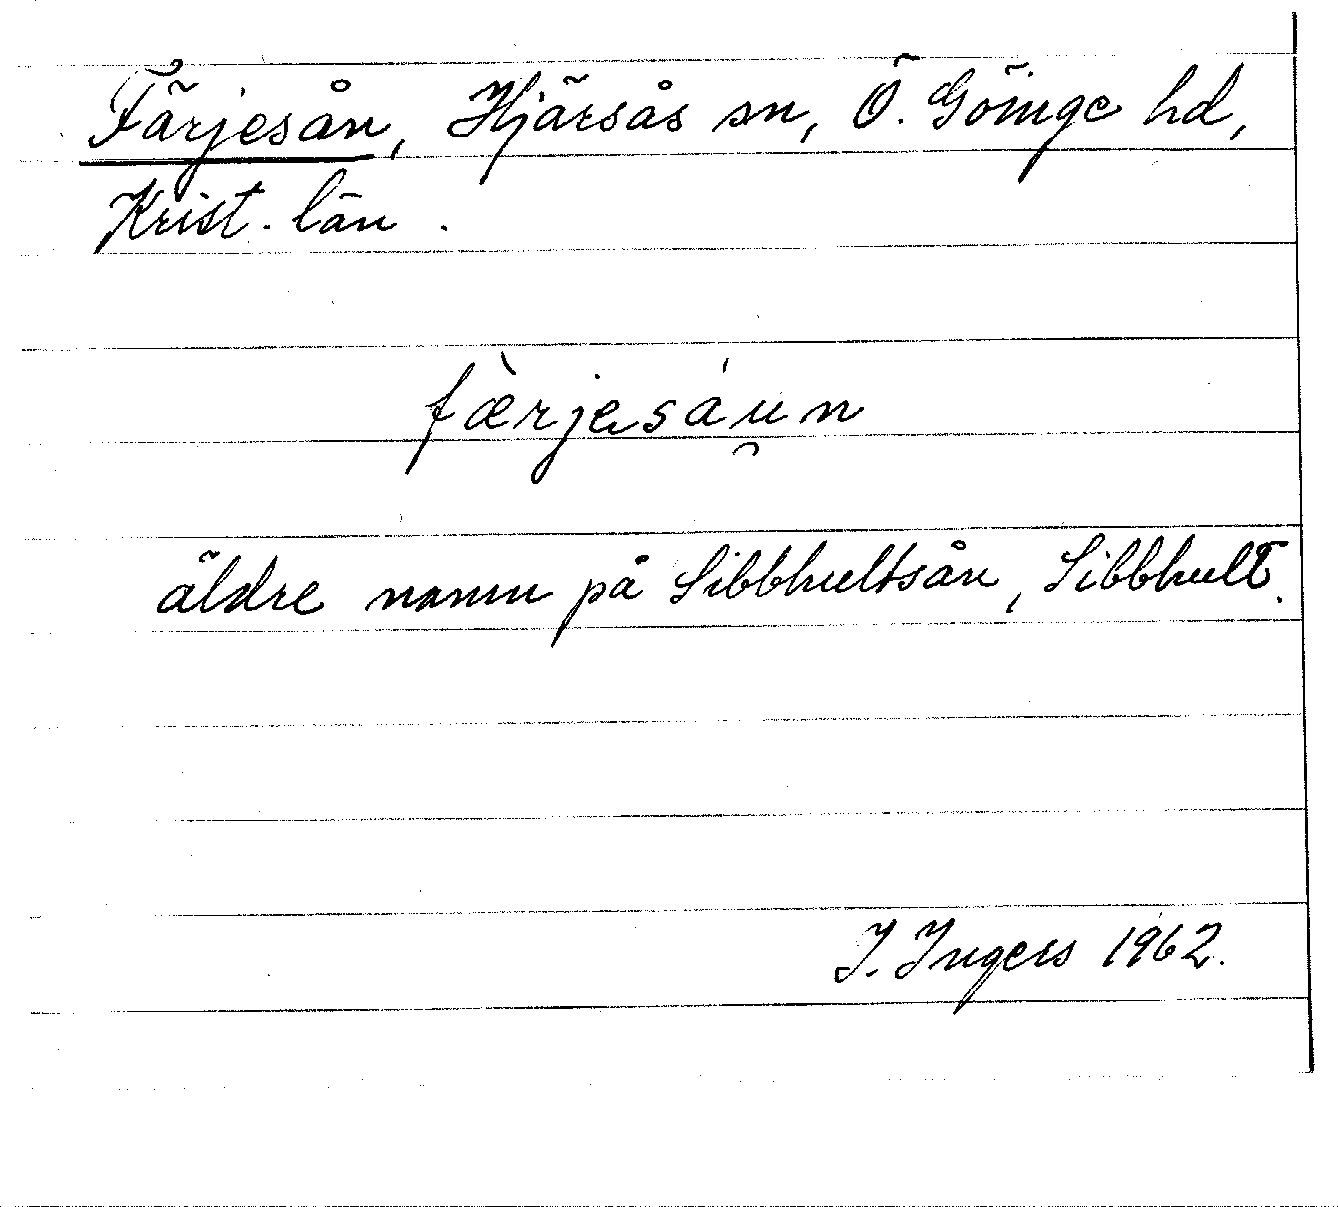 Färjesån, Hjärsås sn, Ö. Göinge hd,
Krist. län.
fæ̀rjesáu̯n
äldre namn på Sibbhultsån, Sibbhult.
I. Ingers 1962.